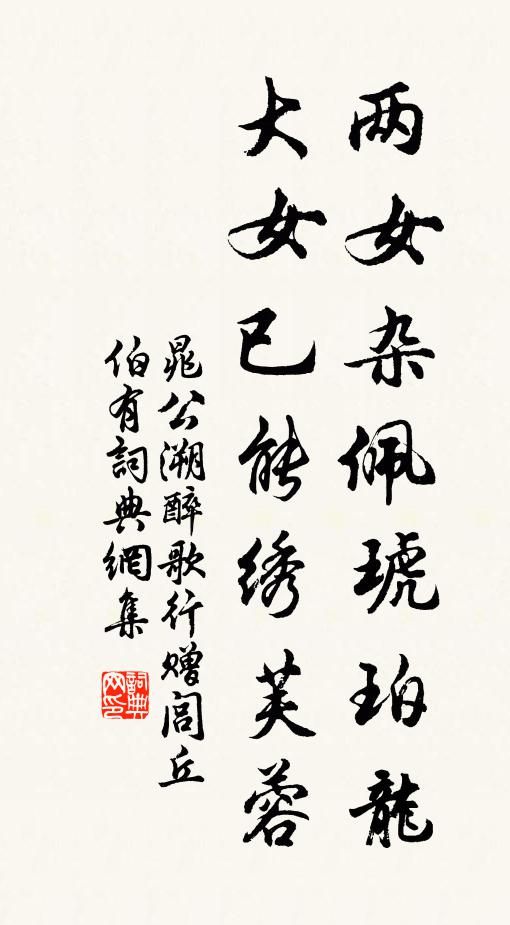 两女杂佩琥珀龍
大女已能绣芙蓉
晁公溯醉歌行赠閭丘
伯有詞典網集
詞典网印